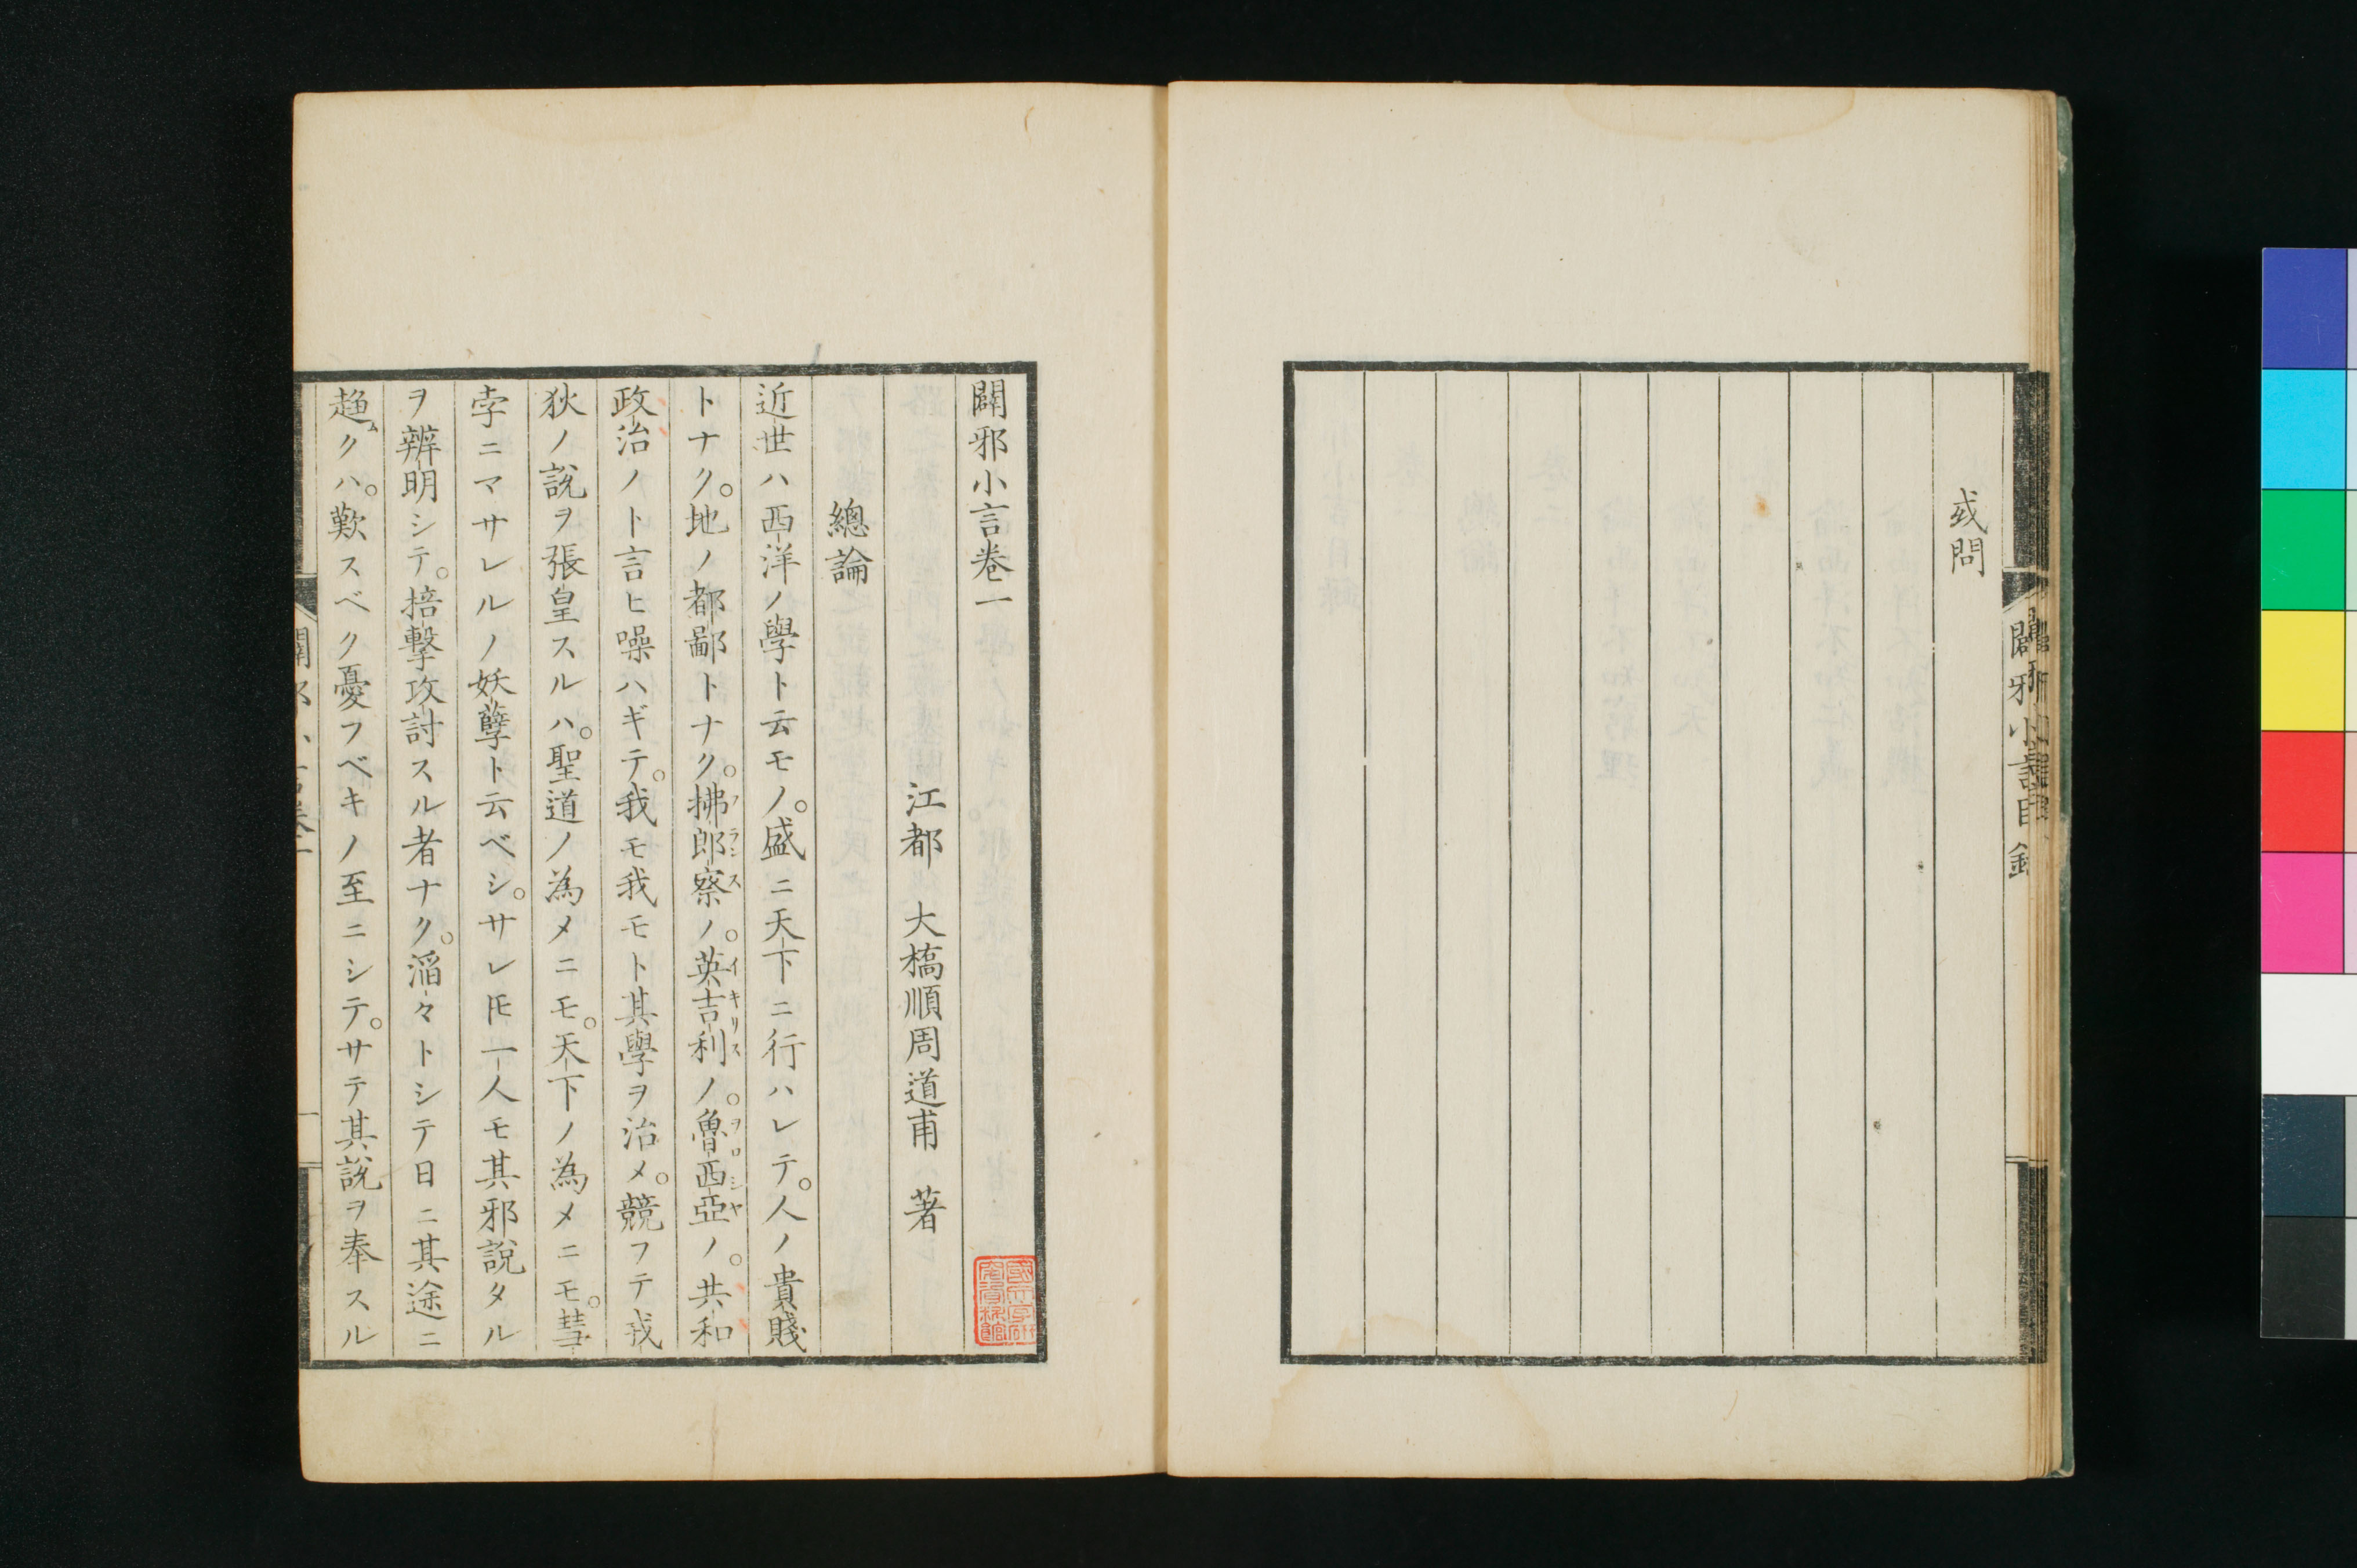 或問
闢邪小言目錄
闢邪小言卷一
江都　大橋順周道甫　著
總論
近世ハ西洋ノ學ト云モノ。盛ニ天下ニ行ハレテ。人ノ貴賤
トナク。地ノ都鄙トナク。拂郎察ノ。英吉利ノ。魯西亞ノ。共和
政治ノト言ヒ噪ハギテ。我モ我モト其學ヲ治メ。競フテ戎
狄ノ說ヲ張皇スルハ。聖道ノ為メニモ。天下ノ為メニモ。彗
孛ニマサレルノ妖孽ト云ベシ。サレ𪜈一人モ其邪說タル
ヲ辨明シテ。掊擊攻討スル者ナク。滔々トシテ日ニ其途ニ
趨クハ。歎スベク憂フベキノ至ニシテ。サテ其說ヲ奉スル